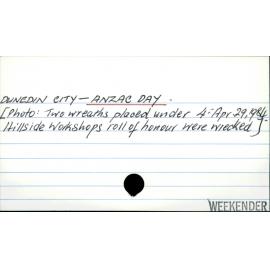 DUNEDIN CITY — ANZAC DAY.
[Photo: Two wreaths placed under 4:- Apr 29, 1984
Hillside Workshops roll of honour were wrecked]
WEEKENDER